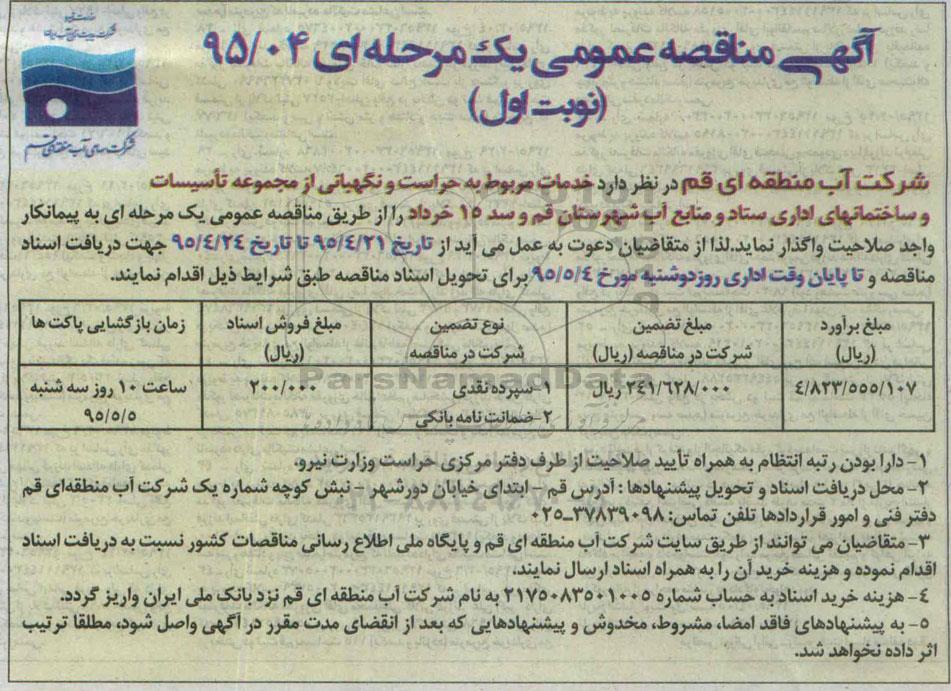 آگهی مناقصه عمومی یک مرحله ای ۹۵/۰۴
(نوبت اول)
شرکت سهامی آب منطقه ای قم
شرکت آب منطقه ای قم در نظر دارد خدمات مربوط به حراست و نگهبانی از مجموعه تأسیسات
و ساختمانهای اداری ستاد و منابع آب شهرستان قم و سد ۱۵ خرداد را از طریق مناقصه عمومی یک مرحله ای به پیمانکار
واجد صلاحیت واگذار نماید.لذا از متقاضیان دعوت به عمل می آید از تاریخ ۹۵/۴/۲۱ تا تاریخ ۹۵/۴/۲۴ جهت دریافت اسناد
مناقصه و تا پایان وقت اداری روزدوشنبه مورخ ۹۵/۵/۴ برای تحویل اسناد مناقصه طبق شرایط ذیل اقدام نمایند.
مبلغ برآورد (ریال)
مبلغ تضمین شرکت در مناقصه (ریال)
نوع تضمین شرکت در مناقصه
مبلغ فروش اسناد (ریال)
زمان بازگشایی پاکت ها
۴/۸۲۳/۵۵۵/۱۰۷
۲۴۱/۶۲۸/۰۰۰ ریال
۱-سپرده نقدی
۲-ضمانت نامه بانکی
۲۰۰/۰۰۰
ساعت ۱۰ روز سه شنبه
۹۵/۵/۵
ParsNamadData
۱- دارا بودن رتبه انتظام به همراه تأیید صلاحیت از طرف دفتر مرکزی حراست وزارت نیرو.
۲- محل دریافت اسناد و تحویل پیشنهادها : آدرس قم - ابتدای خیابان دورشهر - نبش کوچه شماره یک شرکت آب منطقه‌ای قم
دفتر فنی و امور قراردادها تلفن تماس: ۳۷۸۳۹۰۹۸-۰۲۵
۳- متقاضیان می توانند از طریق سایت شرکت آب منطقه ای قم و پایگاه ملی اطلاع رسانی مناقصات کشور نسبت به دریافت اسناد
اقدام نموده و هزینه خرید آن را به همراه اسناد ارسال نمایند.
۴- هزینه خرید اسناد به حساب شماره ۲۱۷۵۰۸۳۵۰۱۰۰۵ به نام شرکت آب منطقه ای قم نزد بانک ملی ایران واریز گردد.
۵- به پیشنهادهای فاقد امضا، مشروط، مخدوش و پیشنهادهایی که بعد از انقضای مدت مقرر در آگهی واصل شود، مطلقا ترتیب
اثر داده نخواهد شد.